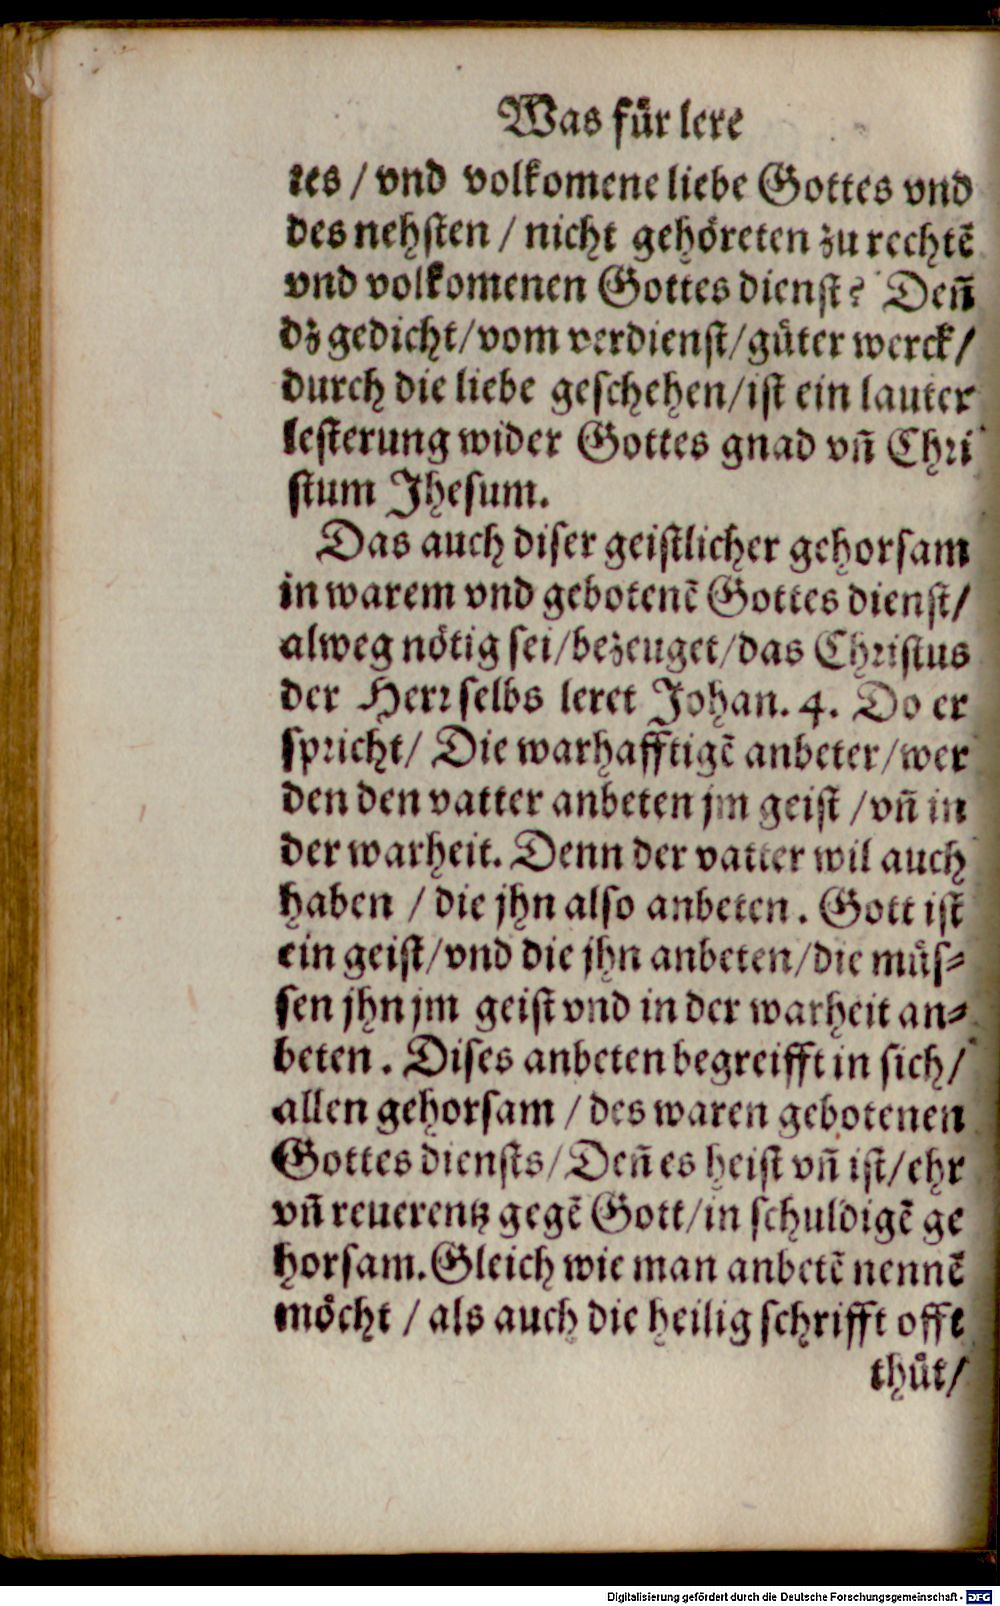 Was fuͤr lere
tes / vnd volkomene liebe Gottes vnd
des nehſten / nicht gehoͤreten zu rechtẽ
vnd volkomenen Gottes dienſt? Deñ
dz gedicht / vom verdienſt / guͤter werck /
durch die liebe geſchehen / iſt ein lauter
leſterung wider Gottes gnad vñ Chri
ſtum Jheſum.
Das auch diſer geiſtlicher gehorſam
in warem vnd gebotenẽ Gottes dienſt /
alweg noͤtig ſei / bezeuget / das Chriſtus
der Herr ſelbs leret Johan. 4. Do er
ſpricht / Die warhafftigẽ anbeter / wer
den den vatter anbeten jm geiſt / vñ in
der warheit. Denn der vatter wil auch
haben / die jhn alſo anbeten. Gott iſt
ein geiſt / vnd die jhn anbeten / die muͤſ⸗
ſen jhn jm geiſt vnd in der warheit an⸗
beten. Diſes anbeten begreifft in ſich /
allen gehorſam / des waren gebotenen
Gottes dienſts / Deñ es heiſt vñ iſt / ehr
vñ reuerentz gegẽ Gott / in ſchuldigẽ ge
horſam. Gleich wie man anbetẽ nennẽ
moͤcht / als auch die heilig ſchrifft offt
thuͤt /
Digitalisierung gefördert durch die Deutsche Forschungsgemeinschaft - DFG